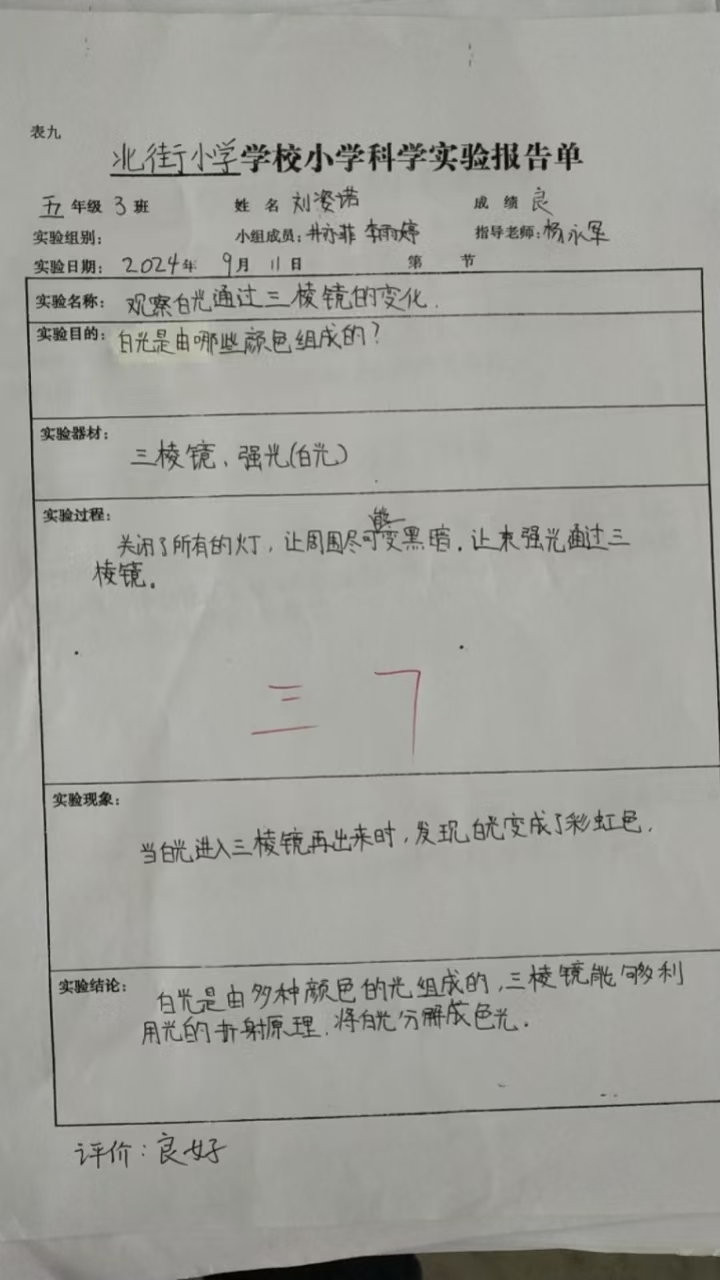 表九
北街小学学校小学科学实验报告单
五年级 3班 姓 名 刘姿诺 成 绩 良
实验组别: 小组成员: 井亦菲 李雨婷 指导老师: 杨永军
实验日期: 2024年 9月 11日 第 节
实验名称: 观察白光通过三棱镜的变化.
实验目的: 白光是由哪些颜色组成的?
实验器材:
三棱镜、强光(白光)
实验过程:
能
关闭了所有的灯,让周围尽可变黑暗.让束强光通过三
棱镜。
三
实验现象:
当白光进入三棱镜再出来时,发现白光变成了彩虹色.
实验结论:
白光是由多种颜色的光组成的,三棱镜能够利
用光的折射原理.将白光分解成色光.
评价:良好